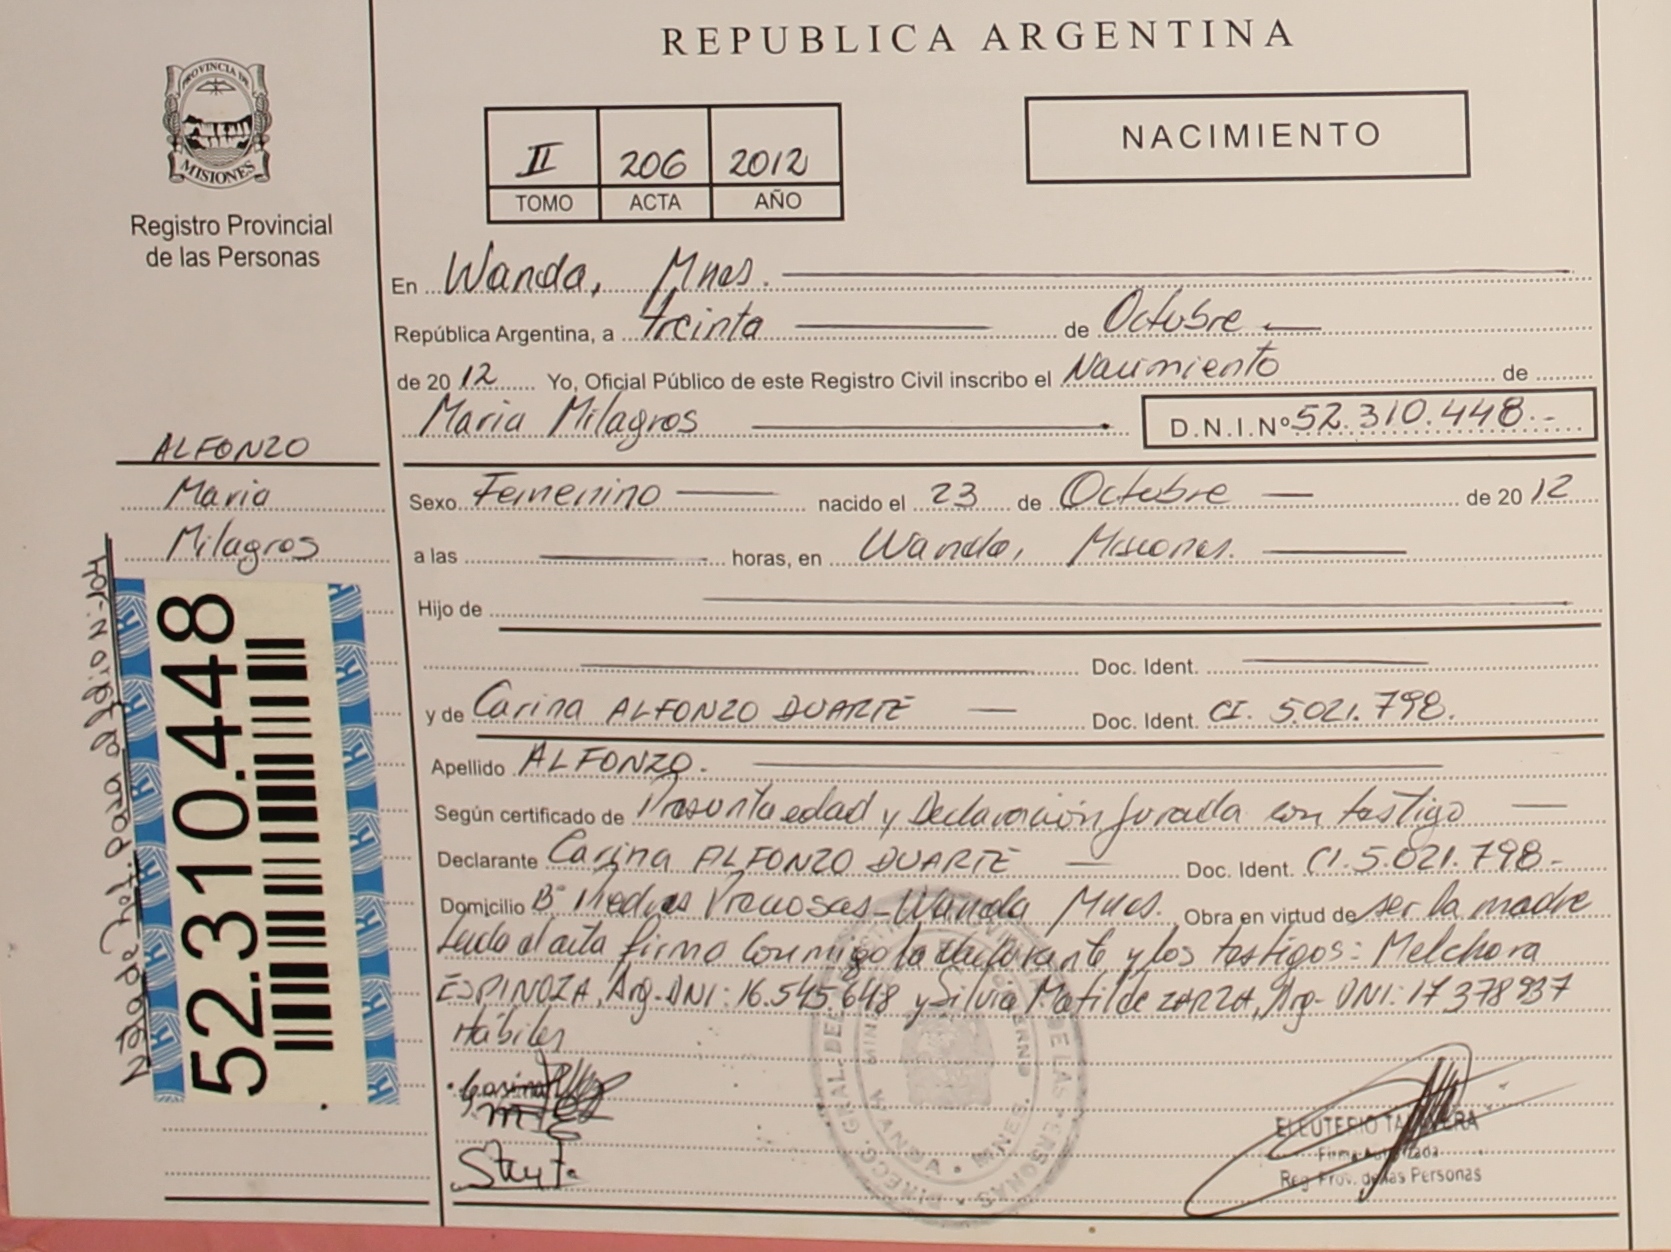 REPUBLICA ARGENTINA
PROVINCIA DE
MISIONES
Registro Provincial
de las Personas
II 206 2012
TOMO ACTA AÑO
NACIMIENTO
En Wanda, Mnes.
República Argentina, a treinta de Octubre
de 2012 Yo, Oficial Público de este Registro Civil inscribo el Nacimiento de
Maria Milagros D.N.I.Nº 52.310.448.-
ALFONZO
Maria
Milagros
Sexo Femenino nacido el 23 de Octubre de 2012
a las horas, en Wanda, Misiones.
Hijo de
Doc. Ident.
y de Carina ALFONZO DUARTE Doc. Ident. CI. 5.021.798.
Apellido ALFONZO.
Según certificado de Presunta edad y Declaración Jurada con testigo
Declarante Carina ALFONZO DUARTE Doc. Ident. CI. 5.021.798-
Domicilio Bº Piedras Preciosas-Wanda Mnes. Obra en virtud de ser la madre
Leido el acta firma conmigo la declarante y los testigos: Melchora
ESPINOZA, Arg-DNI: 16.545648 y Silvia Matilde ZARZA, Arg- DNI: 17378937
Hábiles
52.310.448
ELEUTERIO
Firma Autorizada
Reg. Prov. de las Personas
WANDA • MNES.